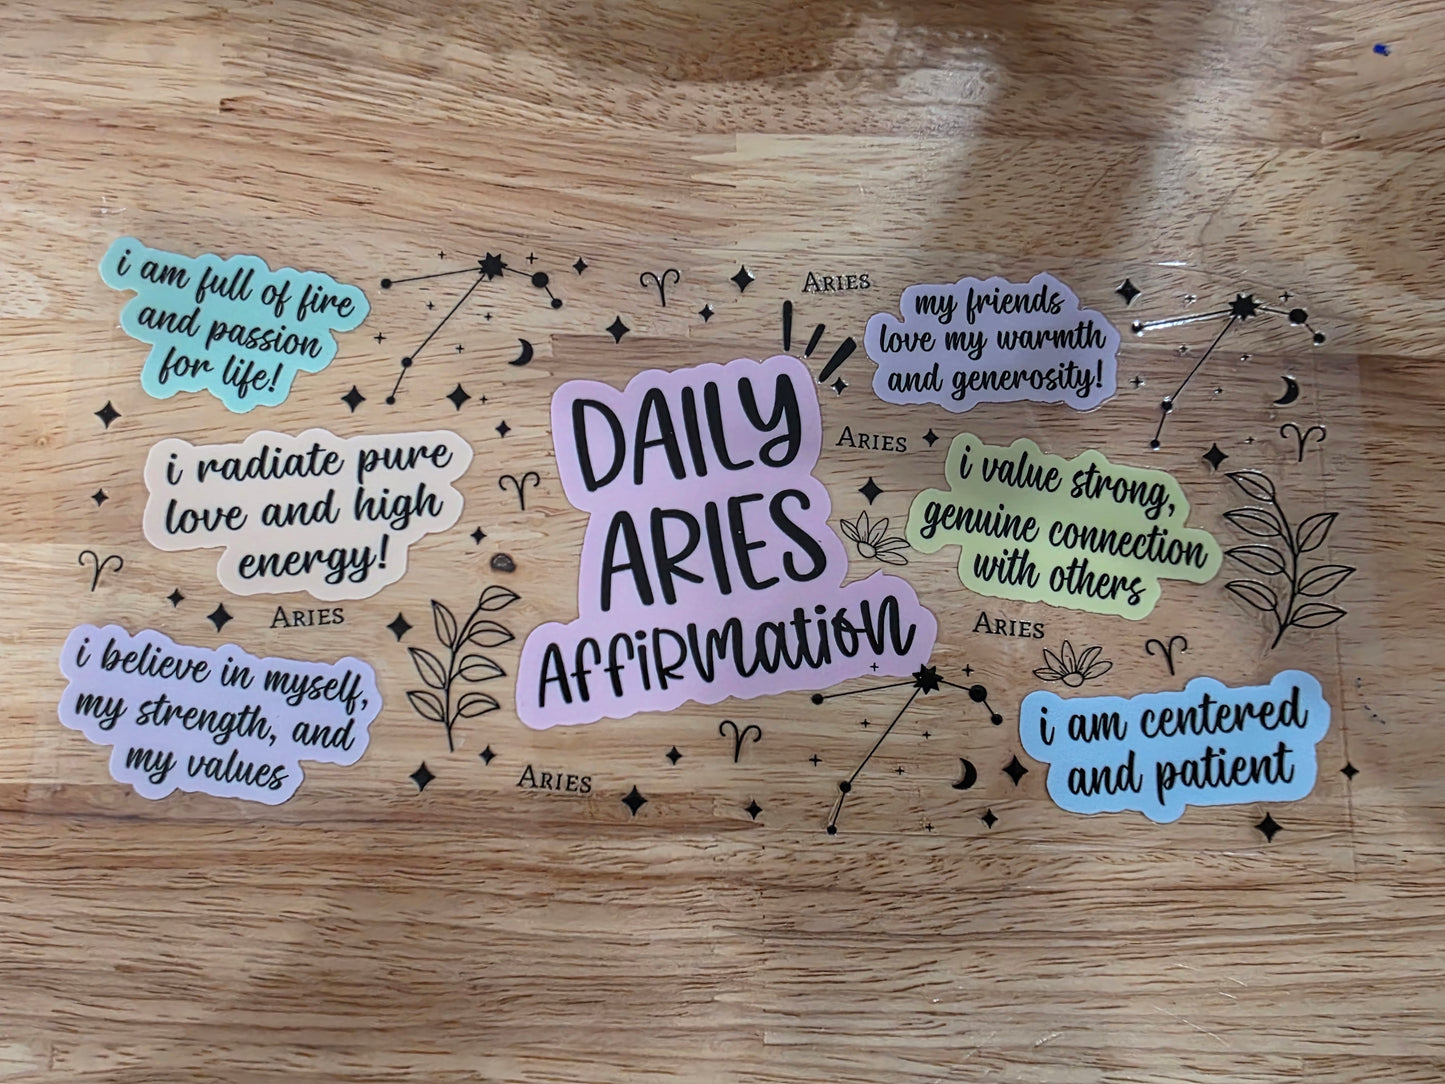 i am full of fire
and passion
for life!
i radiate pure
love and high
energy!
Aries
i believe in myself,
my strength, and
my values
Aries
DAILY
ARIES
AFFiRMation
Aries
Aries
my friends
love my warmth
and generosity!
i value strong,
genuine connection
with others
Aries
i am centered
and patient